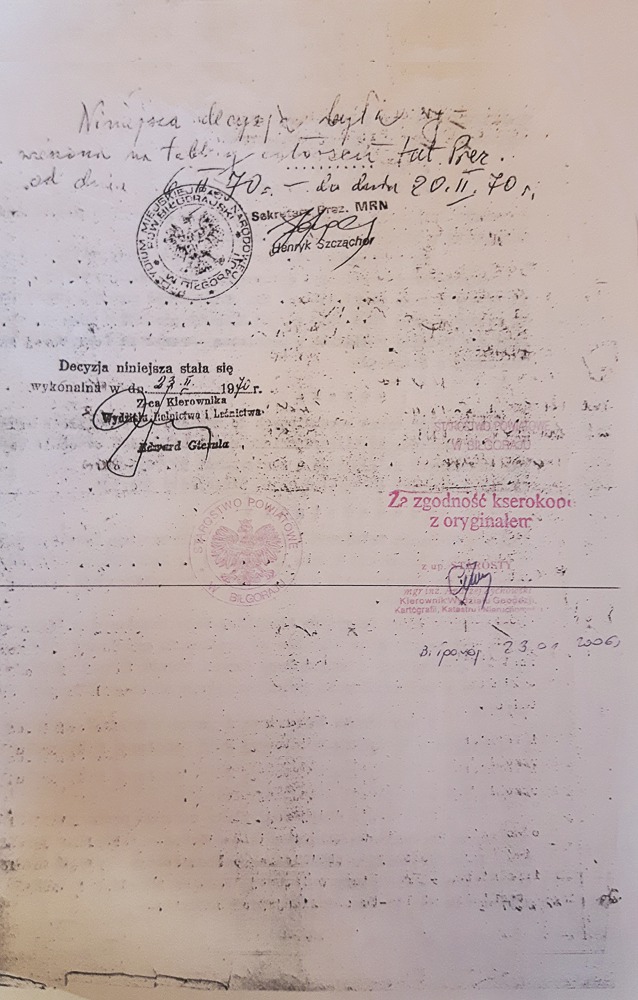 Niniejsza decyzja była wy-
wieszona na tablicy ogłoszeń tut. Prez.
od dnia 6 II 70 r. – do dnia 20.II.70 r.
PREZYDIUM MIEJSKIEJ RADY NARODOWEJ
W BIŁGORAJU
POW. BIŁGORAJSKI
Sekretarz Prez. MRN
Henryk Szczachor
Decyzja niniejsza stała się
wykonalna w dn. 23 II 1970 r.
Z-ca Kierownika
Wydziału Rolnictwa i Leśnictwa
Edward Gierula
STAROSTWO POWIATOWE
W BIŁGORAJU
Za zgodność kserokop
z oryginałem
STAROSTWO POWIATOWE
W BIŁGORAJU
z up. STAROSTY
mgr inż.
Kierownik Wydziału Geodezji,
Kartografii, Katastru i Nieruchomości
23.01.2006